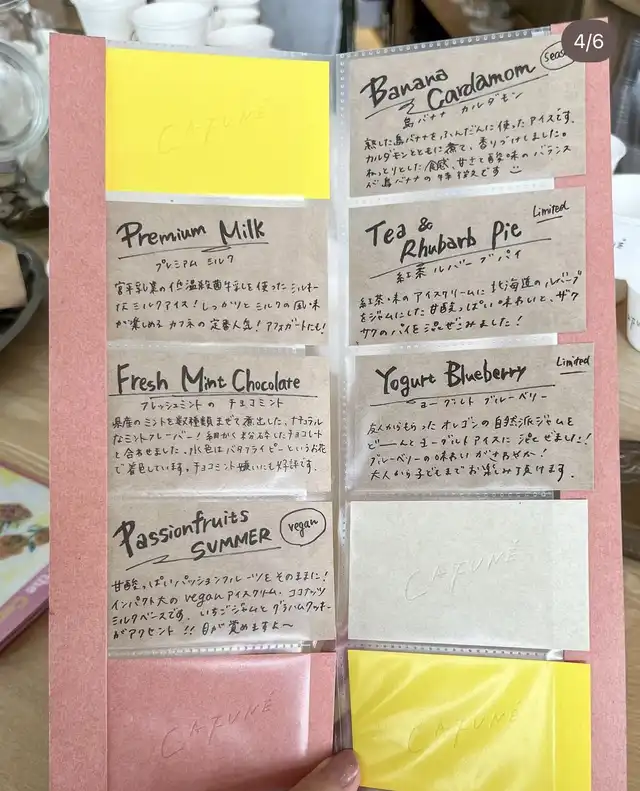 4/6
CAFUNÉ
Premium Milk
プレミアム ミルク
宮平乳業の低温殺菌牛乳を使ったミルキー
なミルクアイス！しっかりとミルクの風味
が楽しめるカフネの定番人気！アフォガートにも！
Fresh Mint Chocolate
フレッシュミントの チョコミント
県産のミントを数種類まぜて煮出した、ナチュラル
なミントフレーバー！細かく粉砕したチョコレート
と合わせました。水色はバタフライピーというお花
で着色しています。チョコミント嫌いにも好評です。
Passionfruits
SUMMER
vegan
甘酸っぱいパッションフルーツをそのままに！
インパクト大のveganアイスクリーム。ココナッツ
ミルクベースです。いちごジャムとグラハムクッキー
がアクセント!!目が覚めますよ〜
CAFUNÉ
Banana
Cardamom
島バナナ カルダモン
熟した島バナナをふんだんに使ったアイスです。
カルダモンとともに煮て、香りづけしました。
ねっとりとした食感、甘さと酸味のバランス
が島バナナの特徴です
Tea &
Rhubarb Pie
Limited
紅茶 ルバーブパイ
紅茶味のアイスクリームに北海道のルバーブ
をジャムにした甘酸っぱい味わいと、ザク
ザクのパイを混ぜこみました！
Yogurt Blueberry
Limited
ヨーグルト ブルーベリー
友人からもらったオレゴンの自然派ジャムを
ど──んとヨーグルトアイスに混ぜました！
ブルーベリーの味わいがさわやか！
大人から子どもまでお楽しみ頂けます。
CAFUNÉ
CAFUNÉ